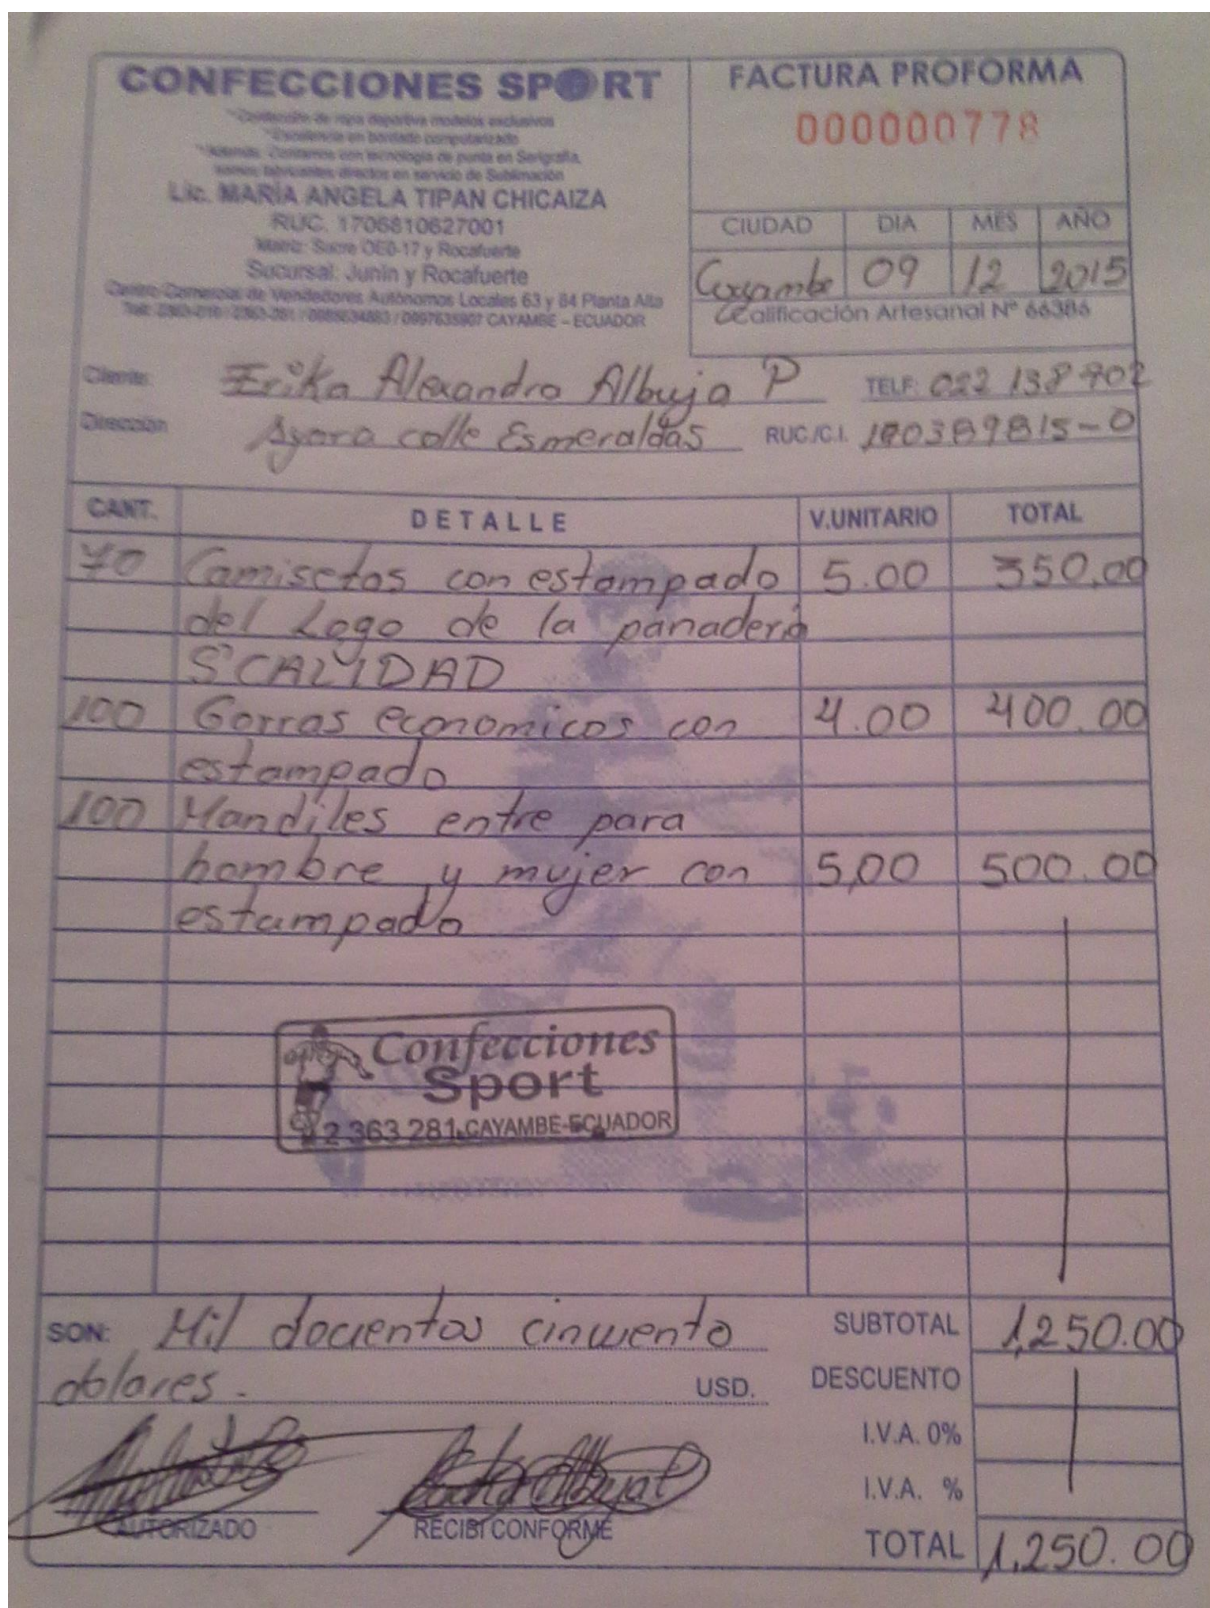 CONFECCIONES SPORT
*Confección de ropa deportiva modelos exclusivos
*Excelencia en bordado computarizado
*Además: Contamos con tecnología de punta en Serigrafía,
somos fabricantes directos en servicio de Sublimación
Lic. MARÍA ANGELA TIPAN CHICAIZA
RUC. 1706810627001
Matriz: Sucre OE0-17 y Rocafuerte
Sucursal: Junín y Rocafuerte
Centro Comercial de Vendedores Autónomos Locales 63 y 84 Planta Alta
CAYAMBE – ECUADOR
FACTURA PROFORMA
000000778
CIUDAD DIA MES AÑO
Cayambe 09 12 2015
Calificación Artesanal Nº 66386
Cliente: Erika Alexandra Albuja P TELF: 022 138 902
Dirección Ayora calle Esmeraldas RUC./C.I. 100389815-0
CANT. DETALLE V.UNITARIO TOTAL
70 Camisetas con estampado 5.00 350,00
del Logo de la panaderia
S'CALIDAD
100 Gorras economicos con 4.00 400.00
estampado
100 Mandiles entre para
hombre y mujer con 5,00 500.00
estampado
Confecciones
Sport
2 363 281 CAYAMBE-ECUADOR
SON: Mil docientos cincuenta SUBTOTAL 1,250.00
dolares. USD. DESCUENTO
I.V.A. 0%
I.V.A. %
AUTORIZADO RECIBI CONFORME TOTAL 1,250.00